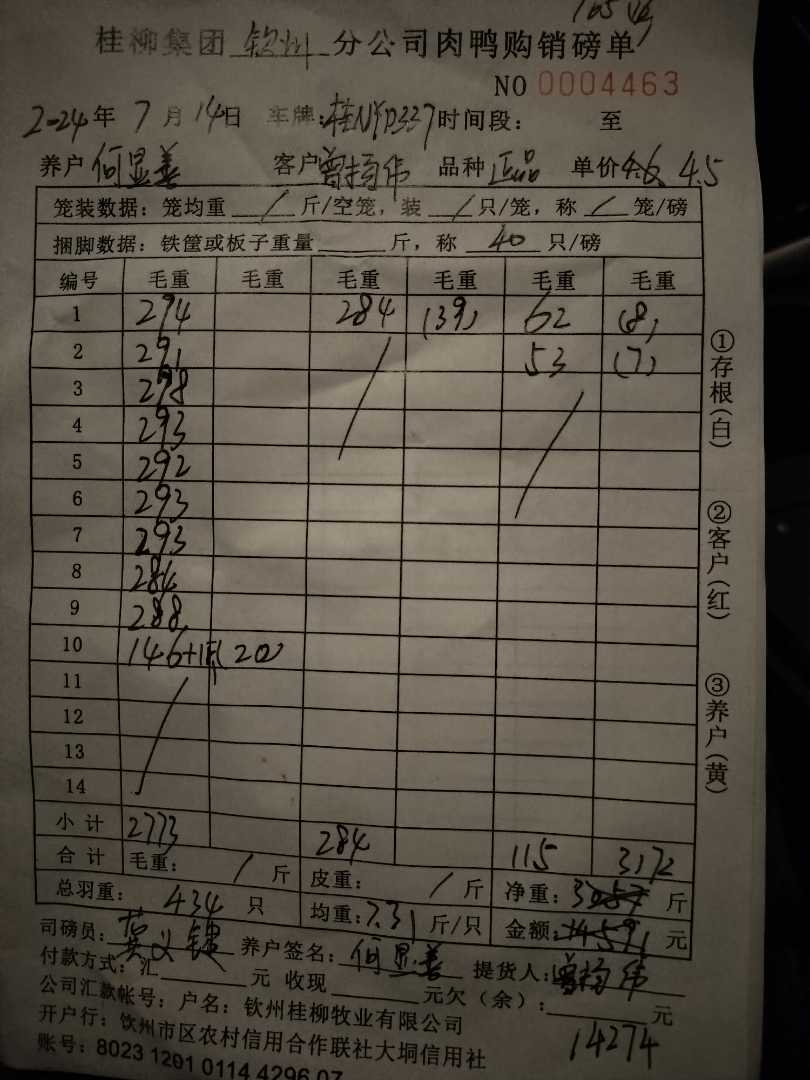 桂柳集团 钦州 分公司肉鸭购销磅单
NO 0004463
2024年 7月 14日 车牌:桂NYD337 时间段: 至
养户 何显善 客户 曾扬伟 品种 正品 单价 4.6 4.5
笼装数据:笼均重 / 斤/空笼,装 / 只/笼,称 / 笼/磅
捆脚数据:铁筐或板子重量 斤,称 40 只/磅
编号 毛重 毛重 毛重 毛重 毛重 毛重
1 294 284 (39) 62 (8)
2 291 53 (7)
3 298
4 293
5 292
6 293
7 293
8 284
9 288
10 146+1 (20)
11
12
13
14
小计 2773 284 115 3172
合计 毛重: / 斤 皮重: / 斤 净重: 斤
总羽重: 434 只 均重:7.31 斤/只 金额: 元
司磅员: 养户签名:何显善 提货人:曾扬伟
付款方式:汇 元 收现 元欠(余): 元
14274
公司汇款帐号:户名:钦州桂柳牧业有限公司
开户行:钦州市区农村信用合作联社大垌信用社
账号:8023 1201 0114 4296 07
①存根(白)
②客户(红)
③养户(黄)